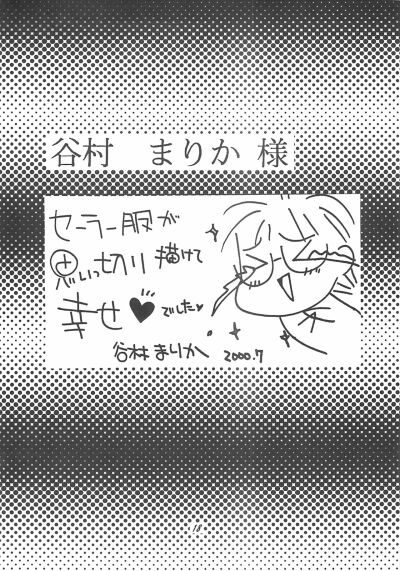 谷村　まりか 様
セーラー服が
思いっ切り描けて
幸せ♥でした♥
谷村まりか 2000.7
13